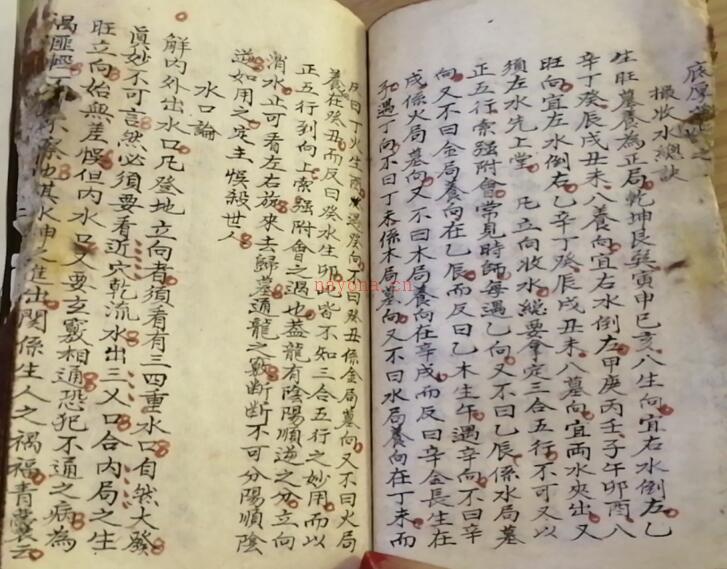 底厚
撮收水總訣
生旺墓養為正局乾坤艮巽寅申巳亥八生向宜右水倒左乙
辛丁癸辰戌丑未八養向宜右水倒左甲庚丙壬子午卯酉八
旺向宜左水倒右乙辛丁癸辰戌丑未八墓向宜兩水夾出又
須左水先上堂凡立向收水縂要拿定三合五行不可又以
正五行索強附會常見時師每遇乙向又不曰乙辰係水局墓
向又不曰金局養向在乙辰而反曰乙木生午遇辛向不曰辛
戌係火局墓向又不曰木局養向在辛戌而反曰辛金長生在
子遇丁向不曰丁未係木局墓向又不曰水局養向在丁未而
反曰丁火生酉遇癸向不曰癸丑係金局墓向又不曰火局
養在癸丑而反曰癸水生卯此皆不知三合五行之妙用而以
正五行到向上索強附會之過也蓋龍有陰陽順逆之分立向
消水止可看左右旋來去歸墓通龍之竅斷斷不可分陽順陰
逆如用之定主悞殺世人
水口論
解內外出水口凡登地立向者須看有三四重水口自然大發
真妙不可言然必須要看近穴乾流水出三叉口合內局之生
旺立向始無差悞但內水口又要立竅相通恐犯不通之病為
禍匪輕不察也其水神之進出關係生人之禍福青囊云
nayona.cn